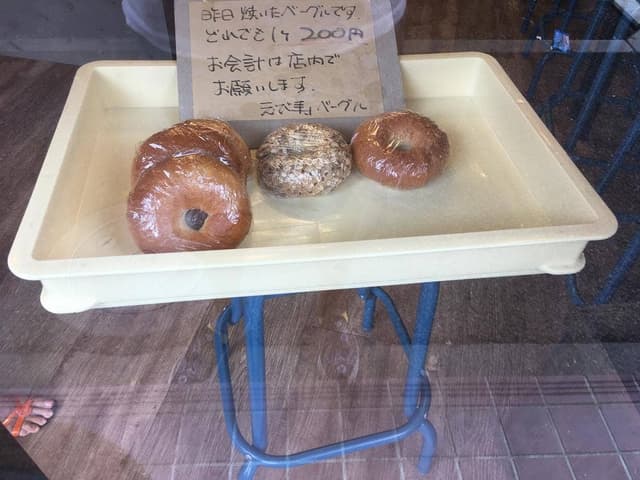 昨日焼いたベーグルです。
どれでも1ケ200円
お会計は店内で
お願いします。
えびすベーグル